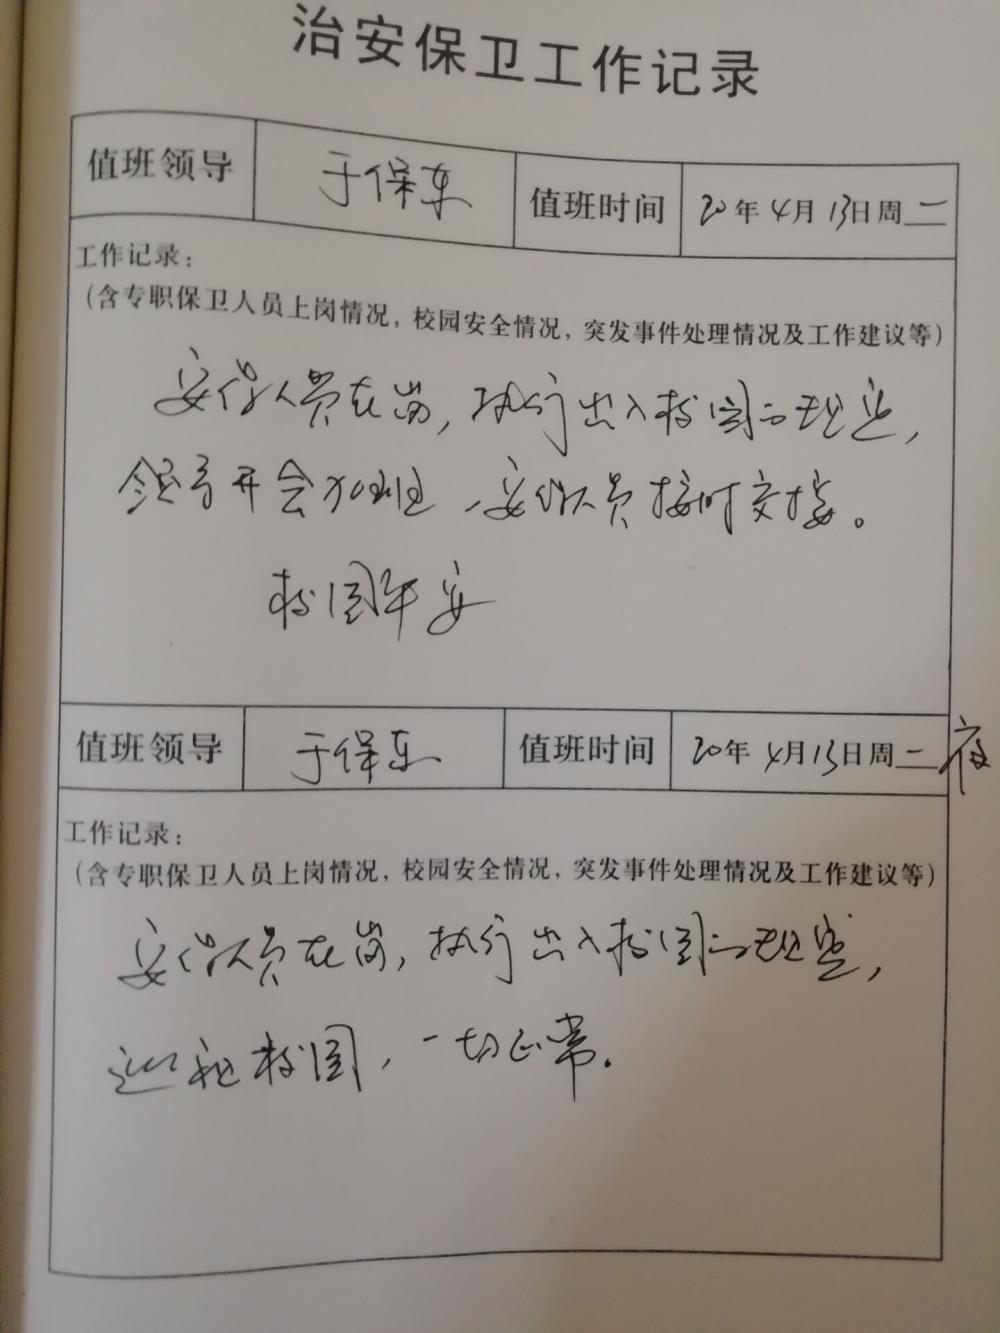 治安保卫工作记录
值班领导 于保东 值班时间 20年4月13日周二
工作记录：
（含专职保卫人员上岗情况，校园安全情况，突发事件处理情况及工作建议等）
安保人员在岗，执行出入校园
领导开会加班，安保人员按时交接。
校园平安
值班领导 于保东 值班时间 20年4月13日周二夜
工作记录：
（含专职保卫人员上岗情况，校园安全情况，突发事件处理情况及工作建议等）
安保人员在岗，执行出入校园
巡视校园，一切正常。